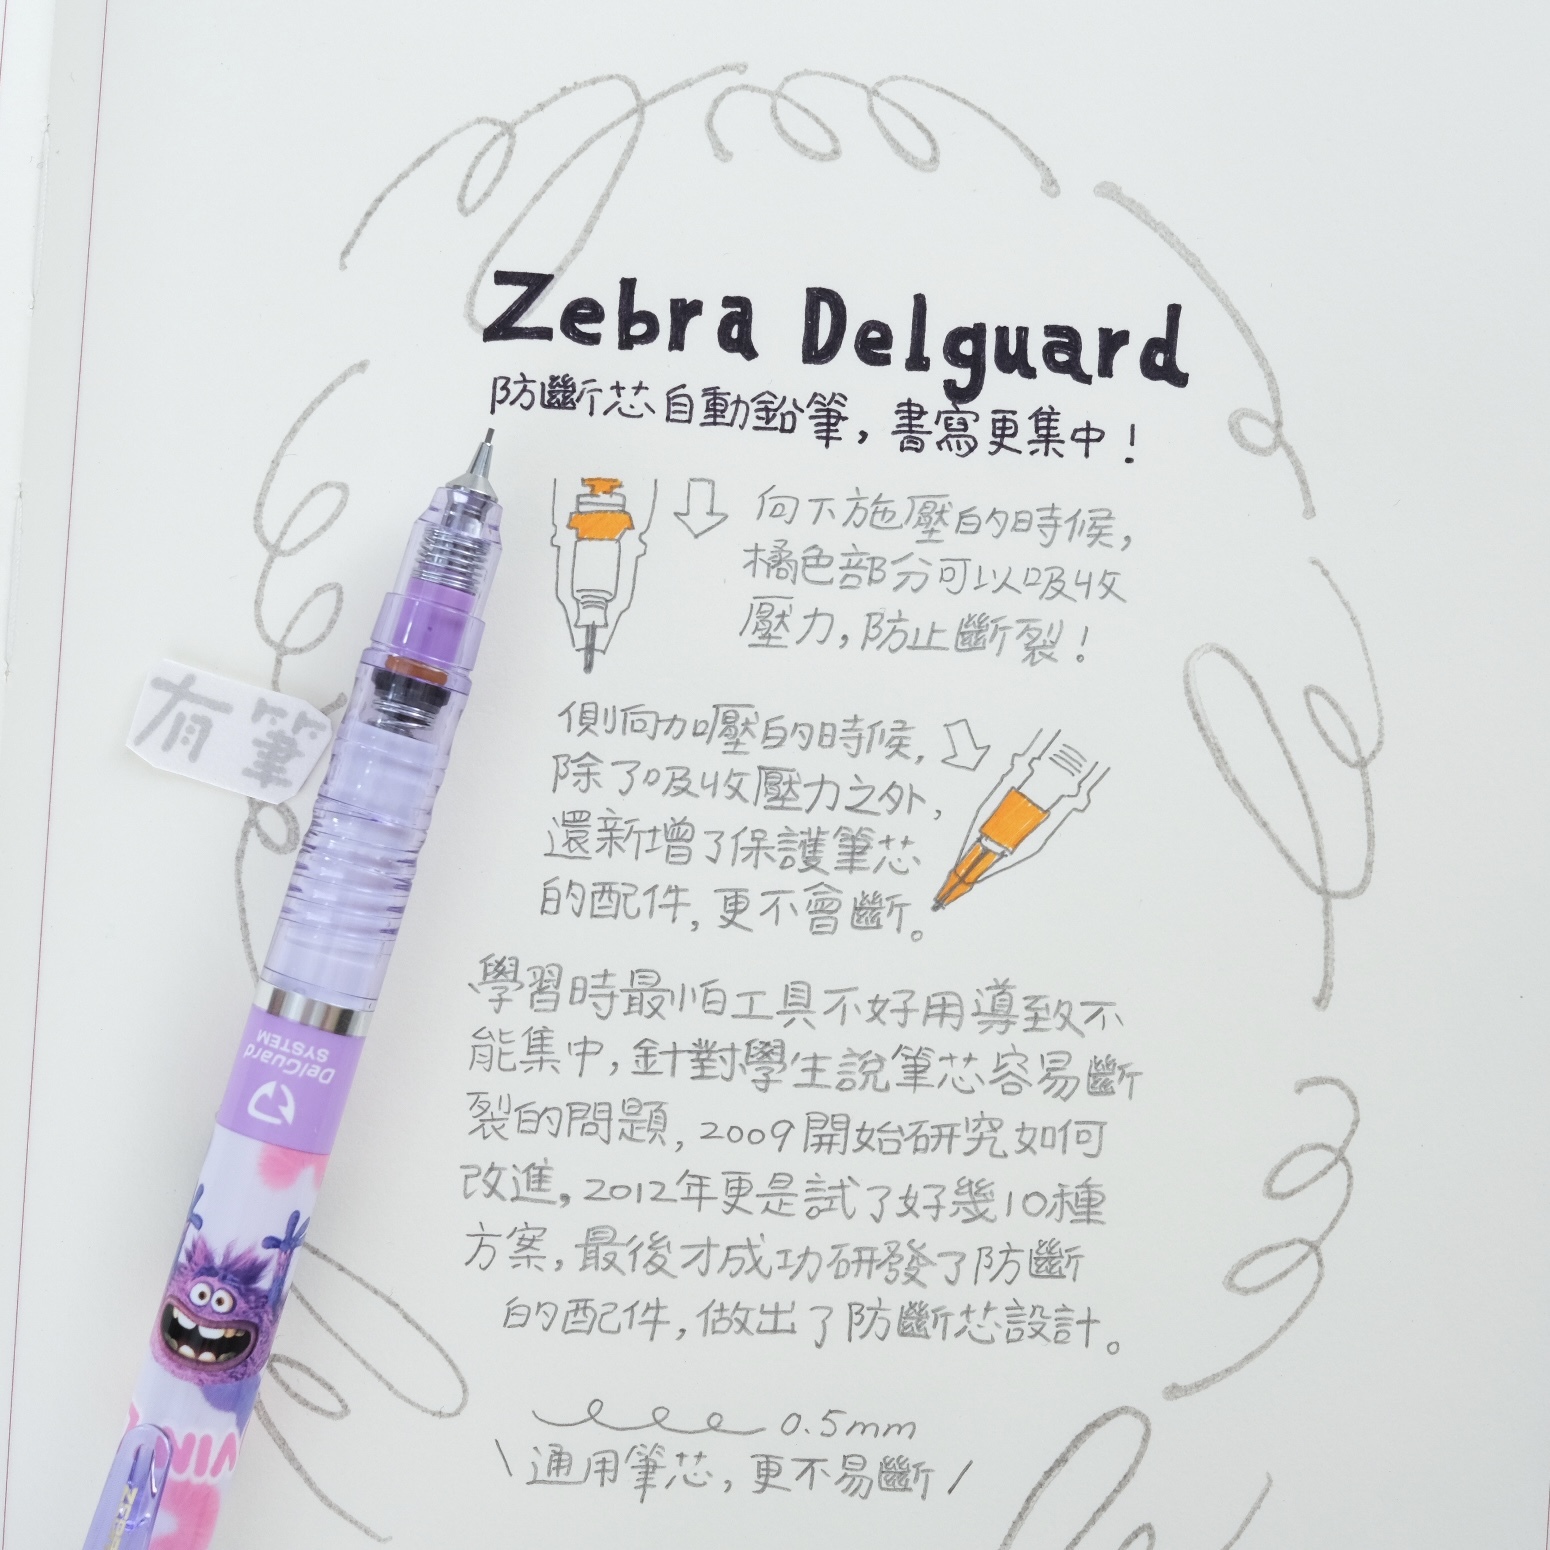 Zebra Delguard
防斷芯自動鉛筆，書寫更集中！
向下施壓的時候，
橘色部分可以吸收
壓力，防止斷裂！
側向加壓的時候，
除了吸收壓力之外，
還新增了保護筆芯
的配件，更不會斷。
有筆
學習時最怕工具不好用導致不
能集中，針對學生說筆芯容易斷
裂的問題，2009開始研究如何
改進，2012年更是試了好幾10種
方案，最後才成功研發了防斷
的配件，做出了防斷芯設計。
DelGuard
SYSTEM
0.5mm
\通用筆芯，更不易斷/